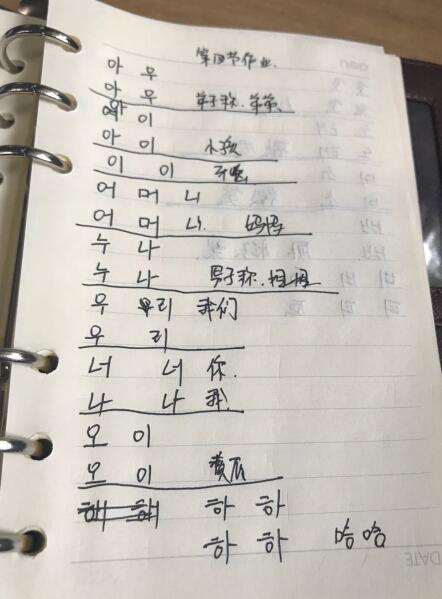 第四节作业.
아 우
아 우 弟子称.弟弟.
아 이
아 이 小孩
이 이
어 머 니
어 머 니. 妈妈
누 나
누 나 男子称.姐姐
우 우리 我们
우 리
너 너 你.
나 나 我.
오 이
오 이 黄瓜
해 해 하 하
하 하 哈哈
DATE